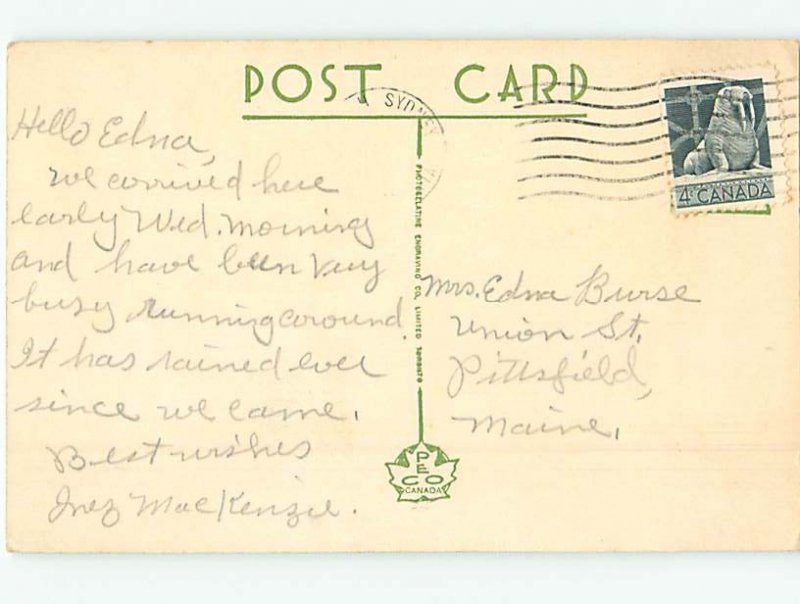 POST CARD
SYDNEY
4¢ CANADA
Hello Edna,
we arrived here
early Wed. morning
and have been very
busy running around.
It has rained ever
since we came.
Best wishes
Inez MacKenzie.
PHOTOGELATINE ENGRAVING CO. LIMITED TORONTO
Mrs. Edna Burse
Union St.
Pittsfield,
Maine.
PECO
CANADA